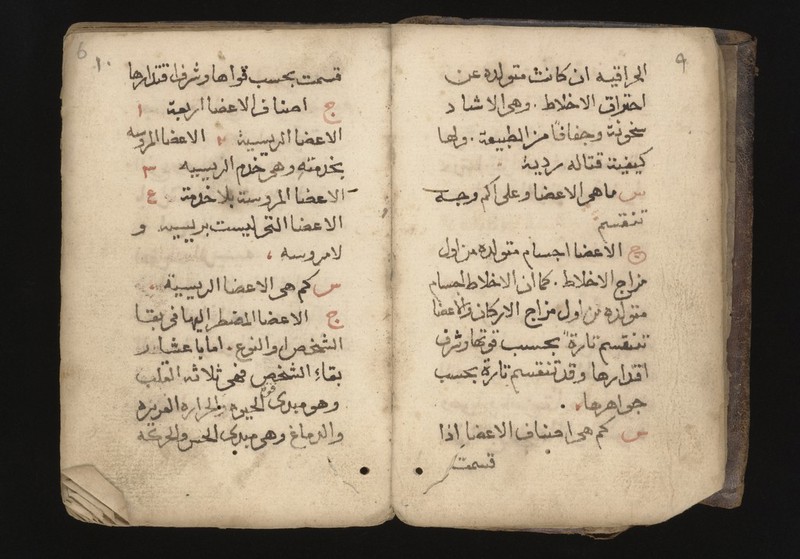 ٩
الحراقيه ان كانت متولده عن
احتراق الاخلاط. وهى الاشد
سخونة وجفافًا من الطبيعة. ولها
كيفية قتاله رديه
س ماهى الاعضا وعلى اكم وجه
تنقسم
ج الاعضا اجسام متولده من اول
مزاج الاخلاط. كما ان الاخلاط اجسام
متولده من اول مزاج الاركان والاعضا
تنقسم تارةً بحسب قوتها وشرف
اقدارها وقد تنقسم تارة بحسب
جواهرها.
س كم هى اصناف الاعضا اذا
قسمت
6
١٠
قسمت بحسب قواها وشرف اقتدارها
ج اصناف الاعضا اربعة ١
الاعضا الريسية ٢ الاعضا المروسه
بخدمته وهى خدم الريسيه ٣
الاعضا المروسة بلا خدمة ع
الاعضا التى ليست بريسيه و
لا مروسه
س كم هى الاعضا الريسية.
ج الاعضا المضطر اليها فى بقا
الشخص او النوع. اما باعتبار
بقاء الشخص فهى ثلاثه القلب
وهو مبدى قوة الحيوه والحراره الغريزه
والدماغ وهو مبدى الحس والحركه